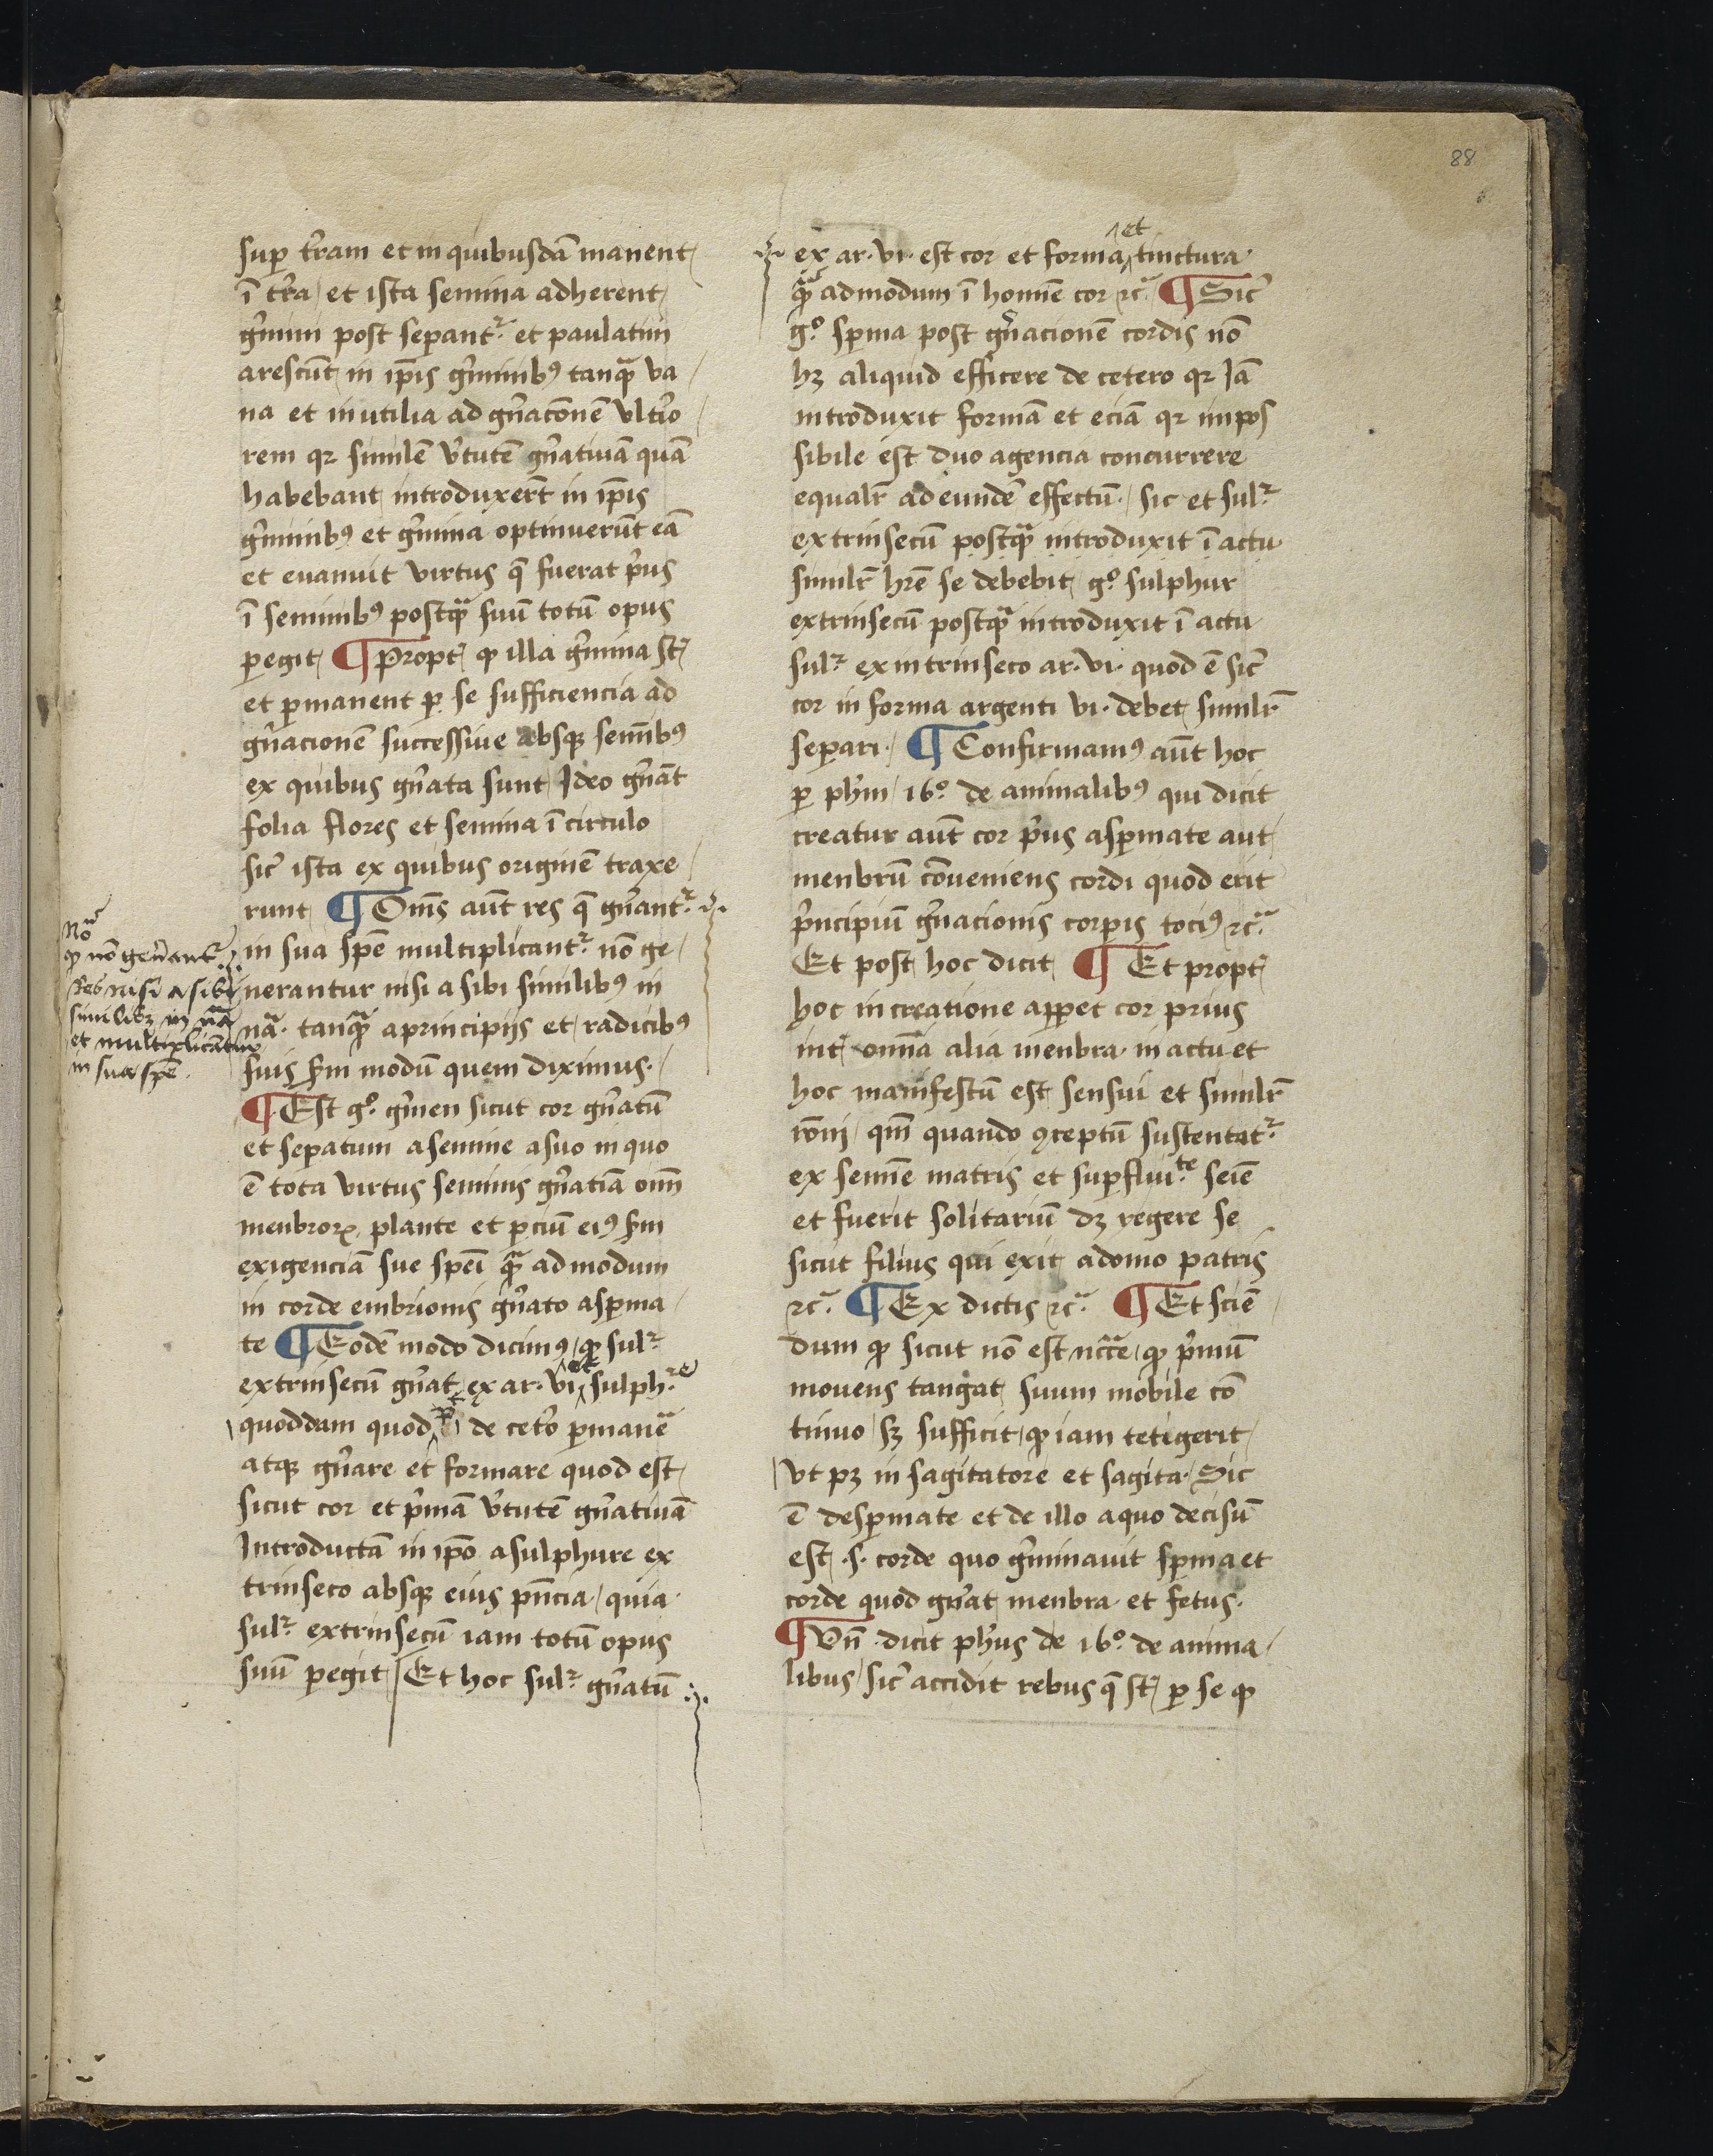 88
sup̱ tr̃am et in quibusdā manent
ī tr̃a et ista semina adherent
gr̃mini post sepantr̃ et paulatim
arescūt in ip̄is gr̃minibꝰ tanqᷓ va
na et inutilia ad gn̄acōnem vltio
rem qr similē v̓tutē gn̄atiuā quā
habebant introduxer̄t in ip̄is
gr̃minibꝰ et gr̃mina optinuerūt eā
et euanuit virtus q̄ fuerat p̓us
ī seminibꝰ postqᷓ suū totū opus
ꝑegit ¶ Propt̄ ꝙ illa gr̃mina st̄
et ꝑmanent ꝑ se sufficiencia ad
gn̄acionē successiue absqꝫ semībꝰ
ex quibus gn̄ata sunt Ideo gn̄āt
folia flores et semina ī circulo
sic̄ ista ex quibus originē traxe
runt ¶ Om̄s aūt res q̄ gn̄antr̃
in sua spē multiplicantr̃ nō ge
nerantur nisi a sibi similibꝰ in
nā. tanqᷓ a principijs et radicibꝰ
suis ẜm modū quem diximus.
¶ Est gͦ. gr̃men sicut cor gn̄atū
et sepatum a semine a suo in quo
ē tota virtus seminis gn̄atiā om̄
menbroꝝ plante et ꝑciū eiꝰ ẜm
exigenciā sue spēi qᷓ admodum
in corde embrionis gn̄ato a sꝑma
te ¶ Eodē modo dicimꝰ ꝙ sulr̃
extrinsecū gn̄at ex ar. vi et sulphr̃e
quoddam quod de cet̓o ꝑmanē
atqꝫ gn̄are et formare quod est
sicut cor et p̓mā v̓tutē gn̄atiuā
Introductā in ip̄o a sulphure ex
trinseco absqꝫ eius pn̄cia quia
sulr̃ extrinsecū iam totū opus
suū ꝑegit Et hoc sulr̃ gn̄atū
Nōᷓ
ꝙ nō gen̓antr̃
Res nisi a sibi
similibꝫ in nā
et multiplicātur
in sua spē.
ex ar. vi. est cor et forma et tinctura.
qᷓ admodum ī homīe cor ⁊cᷓ ¶ Sic̄
gͦ sꝑma post gn̄acionē cordis nō
hꝫ aliquid efficere de cetero qr Iā
introduxit formā et eciā qr impos
sibile est duo agencia concurrere
equalr̃ ad eundē effectū. sic et sulr̃
extrinsecū postqᷓ introduxit ī actu
similr̃ hr̄e se debebit gͦ sulphur
extrinsecū postqᷓ introduxit ī actu
sulr̃ ex intrinseco ar. vi. quod ē sic̄
cor in forma argenti vi. debet similr̃
separi. ¶ Confirmamꝰ aūt hoc
ꝑ ph̄m 16ͦ. de animalibꝰ qui dicit
creatur aūt cor p̓us a sꝑmate aut
menbrū cōueniens cordi quod erit
p̓ncipiū gn̄acionis corꝑis tociꝰ ⁊cᷓ
Et post hoc dicit ¶ Et propt̄
hoc in creatione apꝑet cor prius
int̄ omīa alia menbra in actu et
hoc manifestū est sensui et similr̃
rōni qm̄ quando ꝯceptū sustentatr̃
ex semīe matris et suꝑfluite seiē
et fuerit solitariū dꝫ regere se
sicut filius qui exit a domo patris
⁊cᷓ. ¶ Ex dictis ⁊cᷓ ¶ Et sciē
dum ꝙ sicut nō est nccᷓe ꝙ p̓mū
mouens tangat suum mobile cō
tinuo sꝫ sufficit ꝙ iam tetigerit
vt pꝫ in sagitatore et sagita. Sic
ē de sꝑmate et de illo a quo decisū
est .s. corde quo gr̃minauit sꝑma et
corde quod gn̄at menbra et fetus.
¶ Vn̄ dicit ph̄us de 16ͦ. de anima
libus sic̄ accidit rebus q̄ st̄ ꝑ se ꝙ